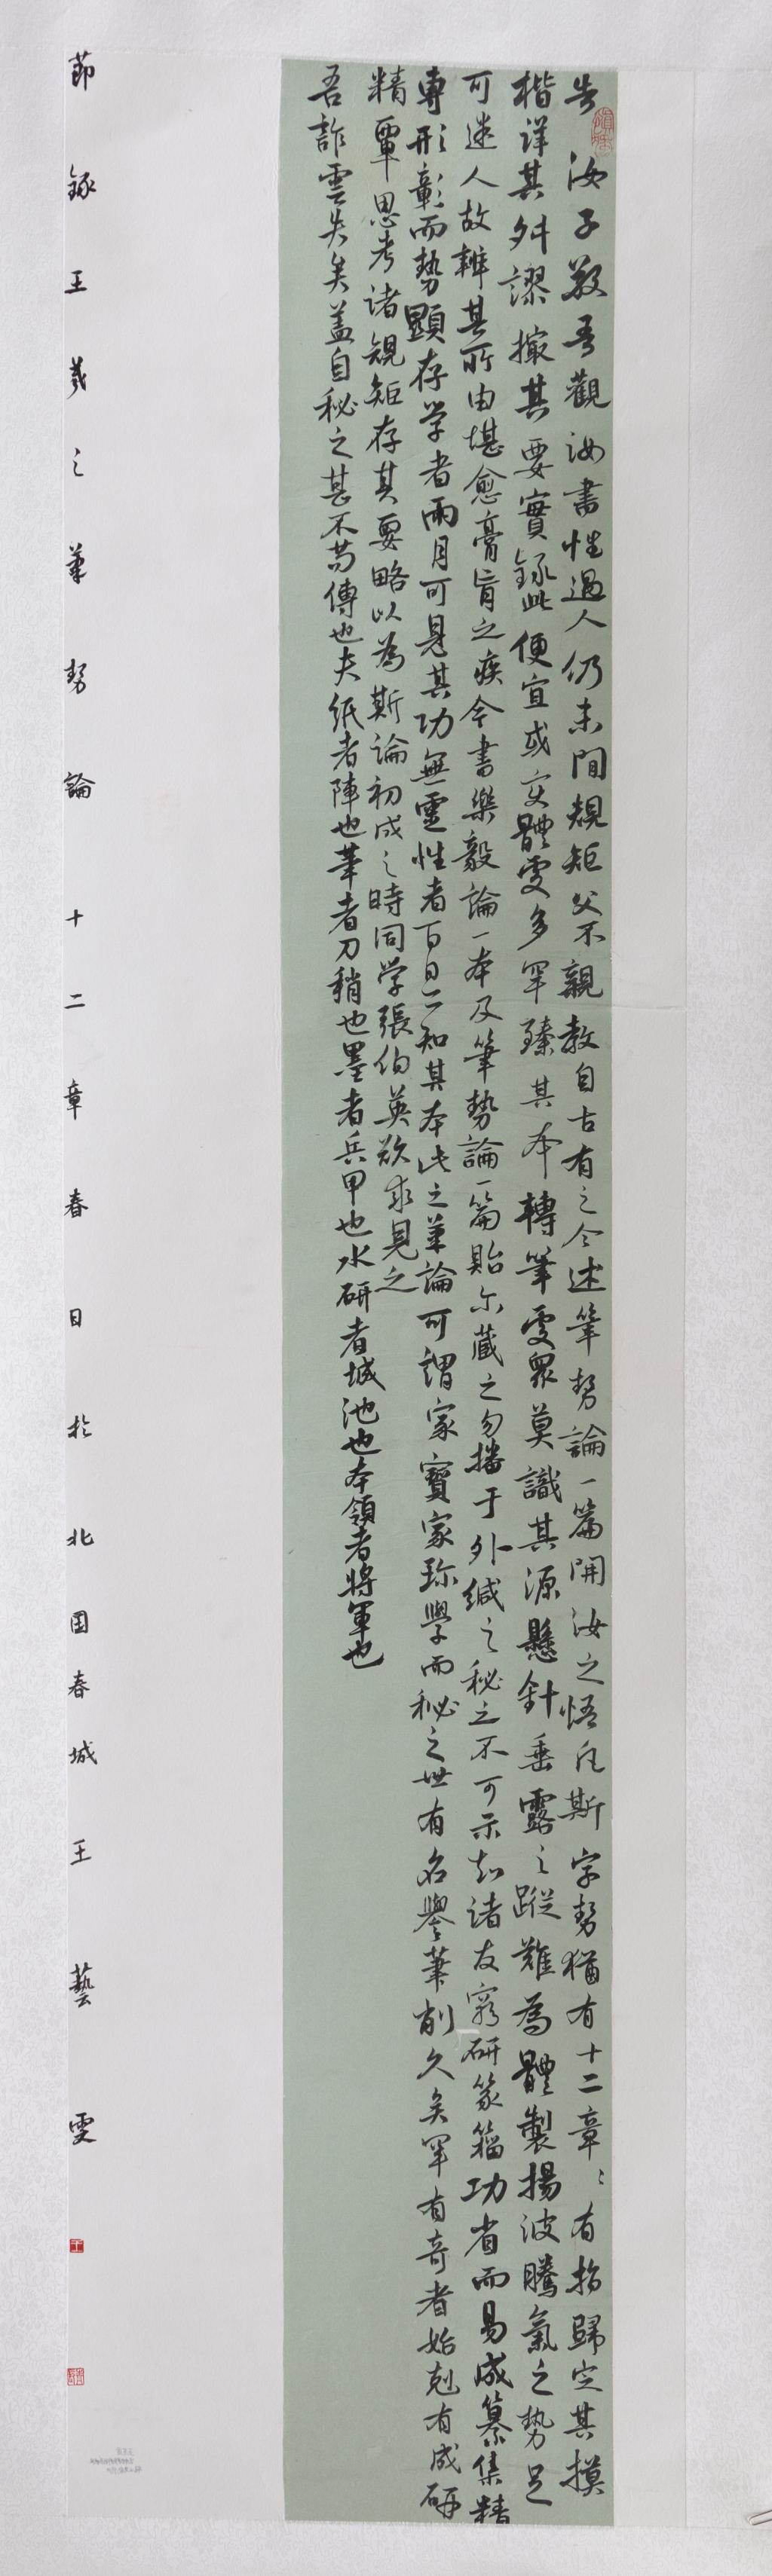 告汝子敬吾觀汝書性過人仍未閒規矩父不親教自古有之今述筆勢論一篇開汝之悟凡斯字勢猶有十二章〻有指歸定其摸
楷詳其舛謬撮其要實錄此便宜或變體處多罕臻其本轉筆處眾莫識其源懸針垂露之蹤難為體製揚波騰氣之勢足
可迷人故辨其所由堪愈膏肓之疾今書樂毅論一本及筆勢論一篇貽尔藏之勿播于外緘之秘之不可示知諸友窮研篆籀功省而易成纂集精
專形彰而勢顯存学者兩月可見其功無靈性者百日亦知其本此之筆論可謂家寶家珍學而秘之世有名譽筆削久矣罕有奇者始剋有成研
精覃思考諸規矩存其要略以為斯論初成之時同学張伯英欲求見之
吾詐雲失矣蓋自秘之甚不苟傳也夫紙者陣也筆者刀矟也墨者兵甲也水研者城池也本領者將軍也
節錄王羲之筆勢論十二章春日於北国春城王藝雯